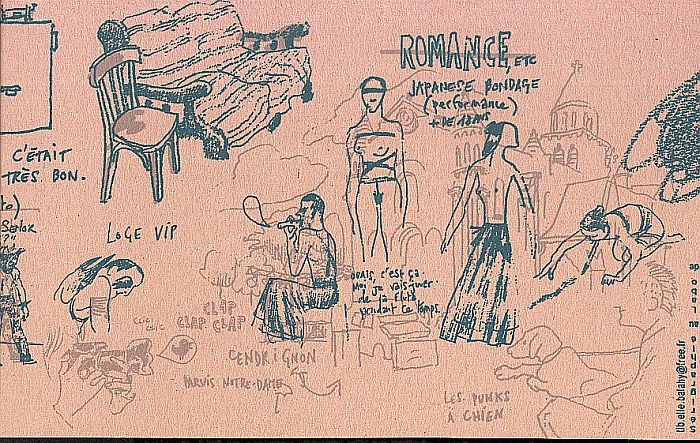 ROMANCE, ETC
JAPANESE BONDAGE
(performance)
+ DE 18 ANS
C'ÉTAIT
TRÈS BON.
LOGE VIP
OUAIS, C'EST ÇA
MOI JE VAIS JOUER
DE LA FLÛTE
PENDANT CE TEMPS.
CLIC CLIC
CLAP
CLAP CLAP
CENDRIGNON
PARVIS NOTRE-DAME
LES PUNKS
À CHIEN
lib.elle.balahy@free.fr